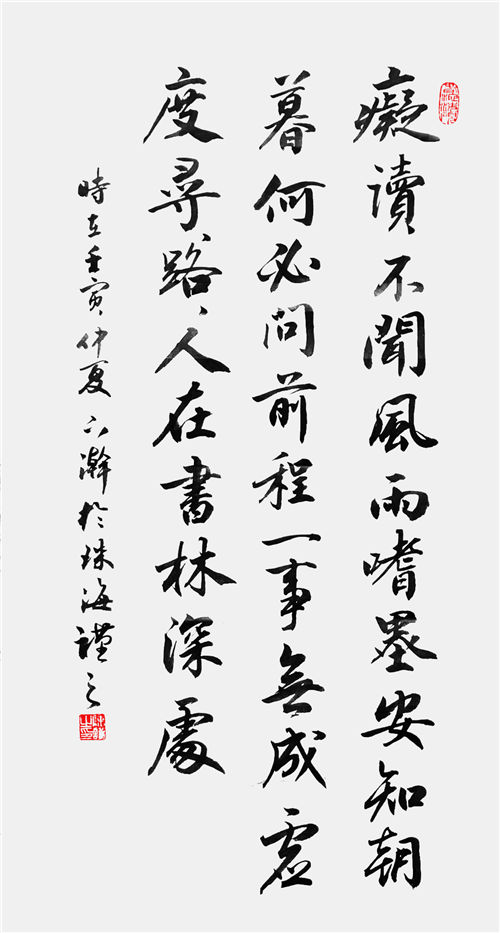 癡讀不聞風雨嗜墨安知朝
暮何必問前程一事無成虛
度尋、路、人在書林深處
時在壬寅仲夏瀚於珠海謹之